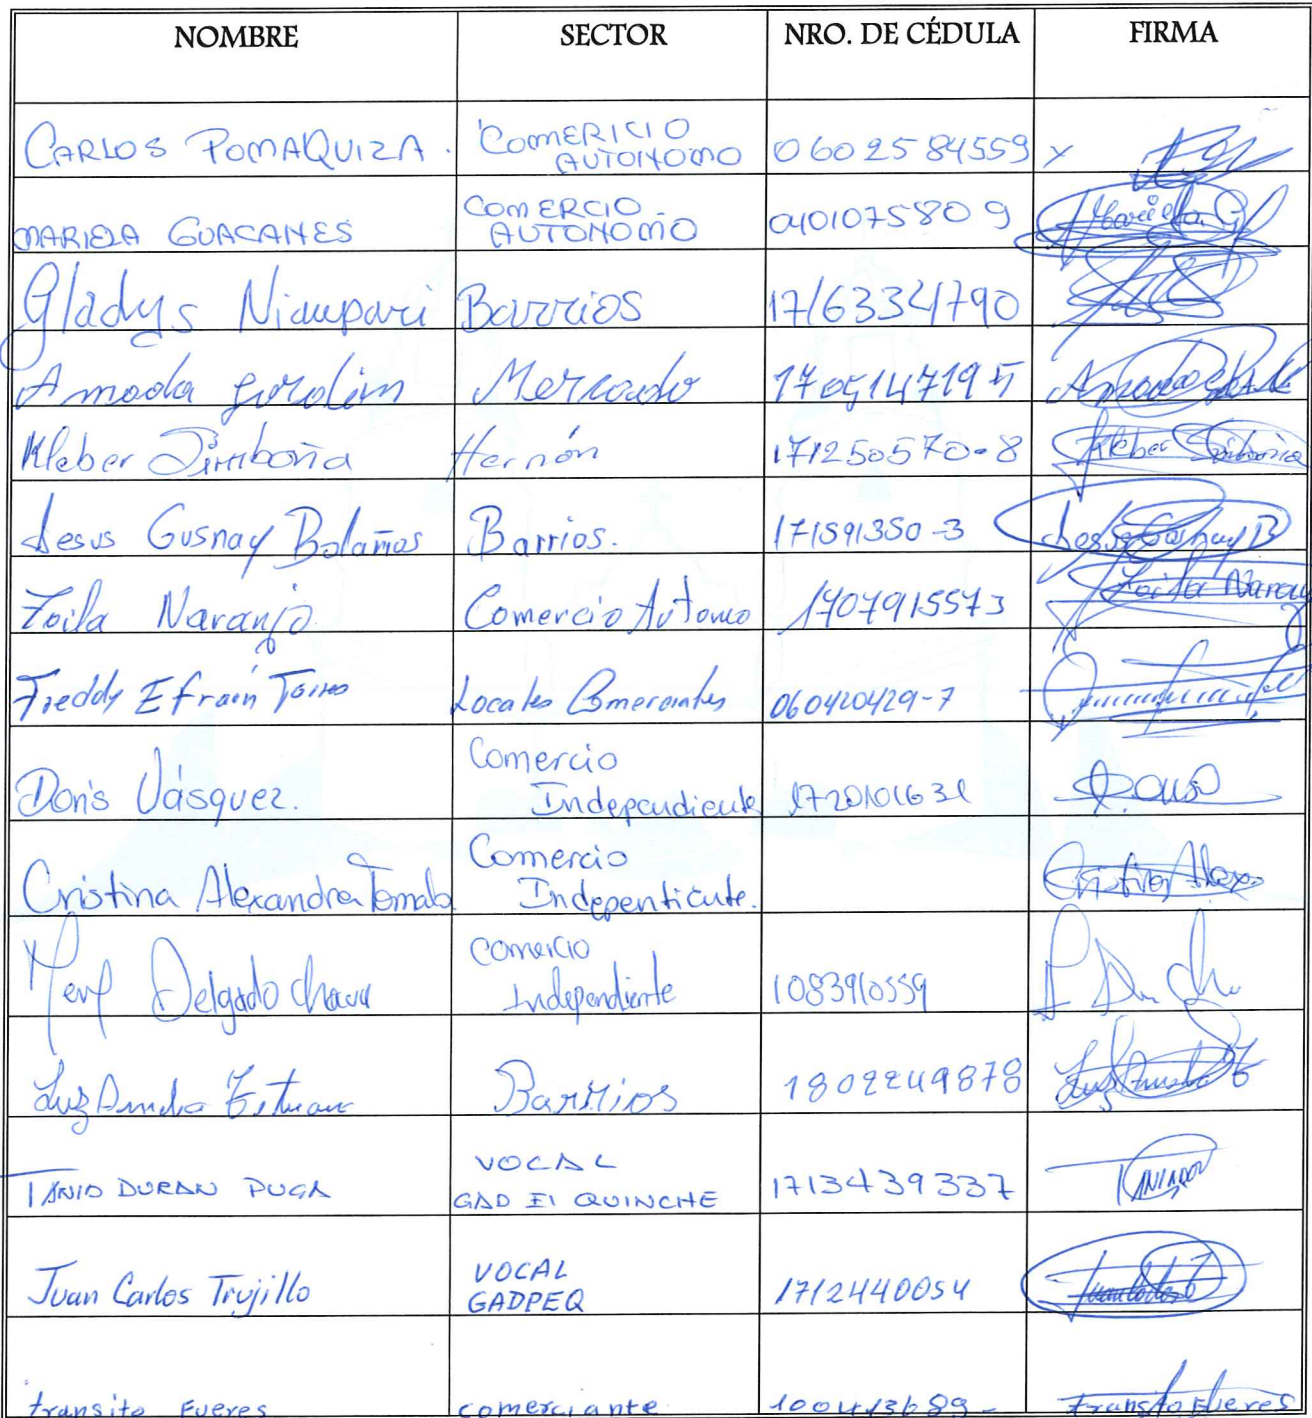 NOMBRE SECTOR NRO. DE CÉDULA FIRMA
CARLOS POMAQUIZA. COMERICIO
AUTONOMO 0602584559 x
MARIELA GUACANES COMERCIO
AUTONOMO 0401075809 Mariela G
Gladys Niaupari Barrios 1716334790
Amada Mercado 1705147195
Kleber Simbaña Hernán 171250570-8 Kleber Simbaña
Jesus Gusnay Bolaños Barrios. 171591350-3 Jesus Gusnay B
Zoila Naranjo Comercio Autonco 1707915573 Zoila Naranj
Freddy Efraín Torres Locales Comerciales 060420429-7
Doris Vásquez. Comercio
Independiente 1720101631
Cristina Alexandra Tomalo Comercio
Indepenticute. Cristina Alexa
Delgado Chavez Comercio
Independiente 1083910559
Luz Barrios 1802249878
TANIO DURAN PUGA VOCAL
GAD El QUINCHE 1713439337
Juan Carlos Trujillo VOCAL
GADPEQ 1712440054
transito Fueres comerciante 100413689- transito Fueres